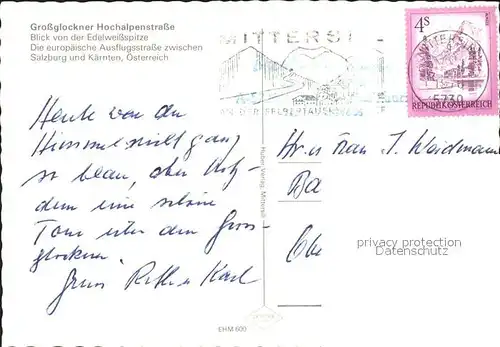 Großglockner Hochalpenstraße
Blick von der Edelweißspitze
Die europäische Ausflugsstraße zwischen
Salzburg und Kärnten, Österreich
MITTERSI
AN DER FELBERTAUERN
4S
REPUBLIK ÖSTERREICH
5730
Heute war der
Himmel nicht ganz
so blau, aber trotz-
dem eine schöne
Tour über den Gross-
glockner.
Gruss Karl
Huber Verlag, Mittersill
Frau J. Weidmann
Ba
Obe
privacy protection
Datenschutz
EHM 600